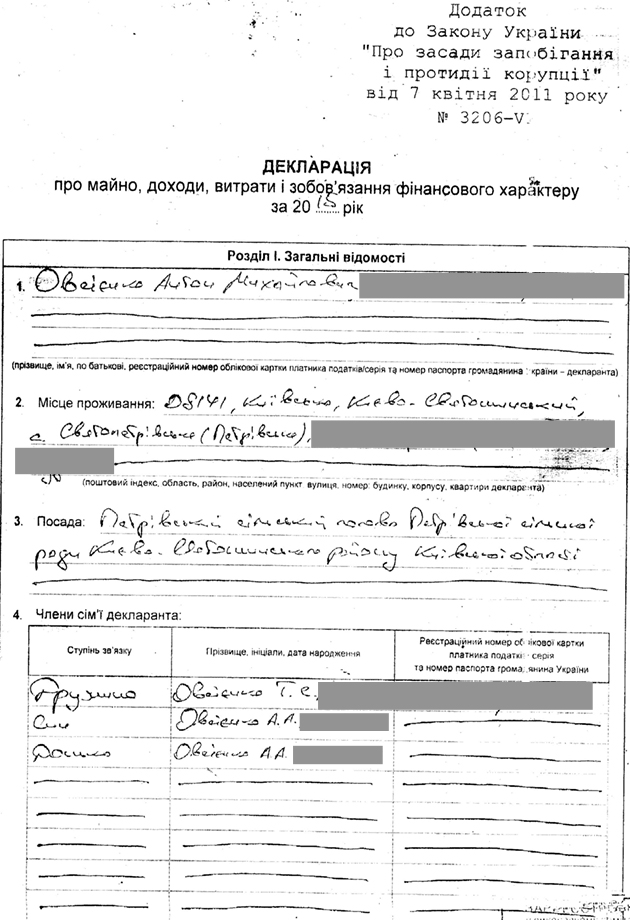 Додаток
до Закону України
"Про засади запобігання
і протидії корупції"
від 7 квітня 2011 року
№ 3206-V
ДЕКЛАРАЦІЯ
про майно, доходи, витрати і зобов'язання фінансового характеру
за 2015 рік
Розділ I. Загальні відомості
1. Овсієнко Антон Михайлович
(прізвище, ім'я, по батькові, реєстраційний номер облікової картки платника податків/серія та номер паспорта громадянина країни – декларанта)
2. Місце проживання: 08141, Київська, Києво-Святошинський,
с. Святопетрівське (Петрівське),
(поштовий індекс, область, район, населений пункт вулиця, номер: будинку, корпусу, квартири декларанта)
3. Посада: Петрівський сільський голова Петрівської сільської
ради Києво-Святошинського району Київської області
4. Члени сім'ї декларанта:
Ступінь зв'язку
Прізвище, ініціали, дата народження
Реєстраційний номер облікової картки
платника податків серія
та номер паспорта громадянина України
Дружина Овсієнко Т. С.
Син Овсієнко А.А.
Дочка Овсієнко А.А.